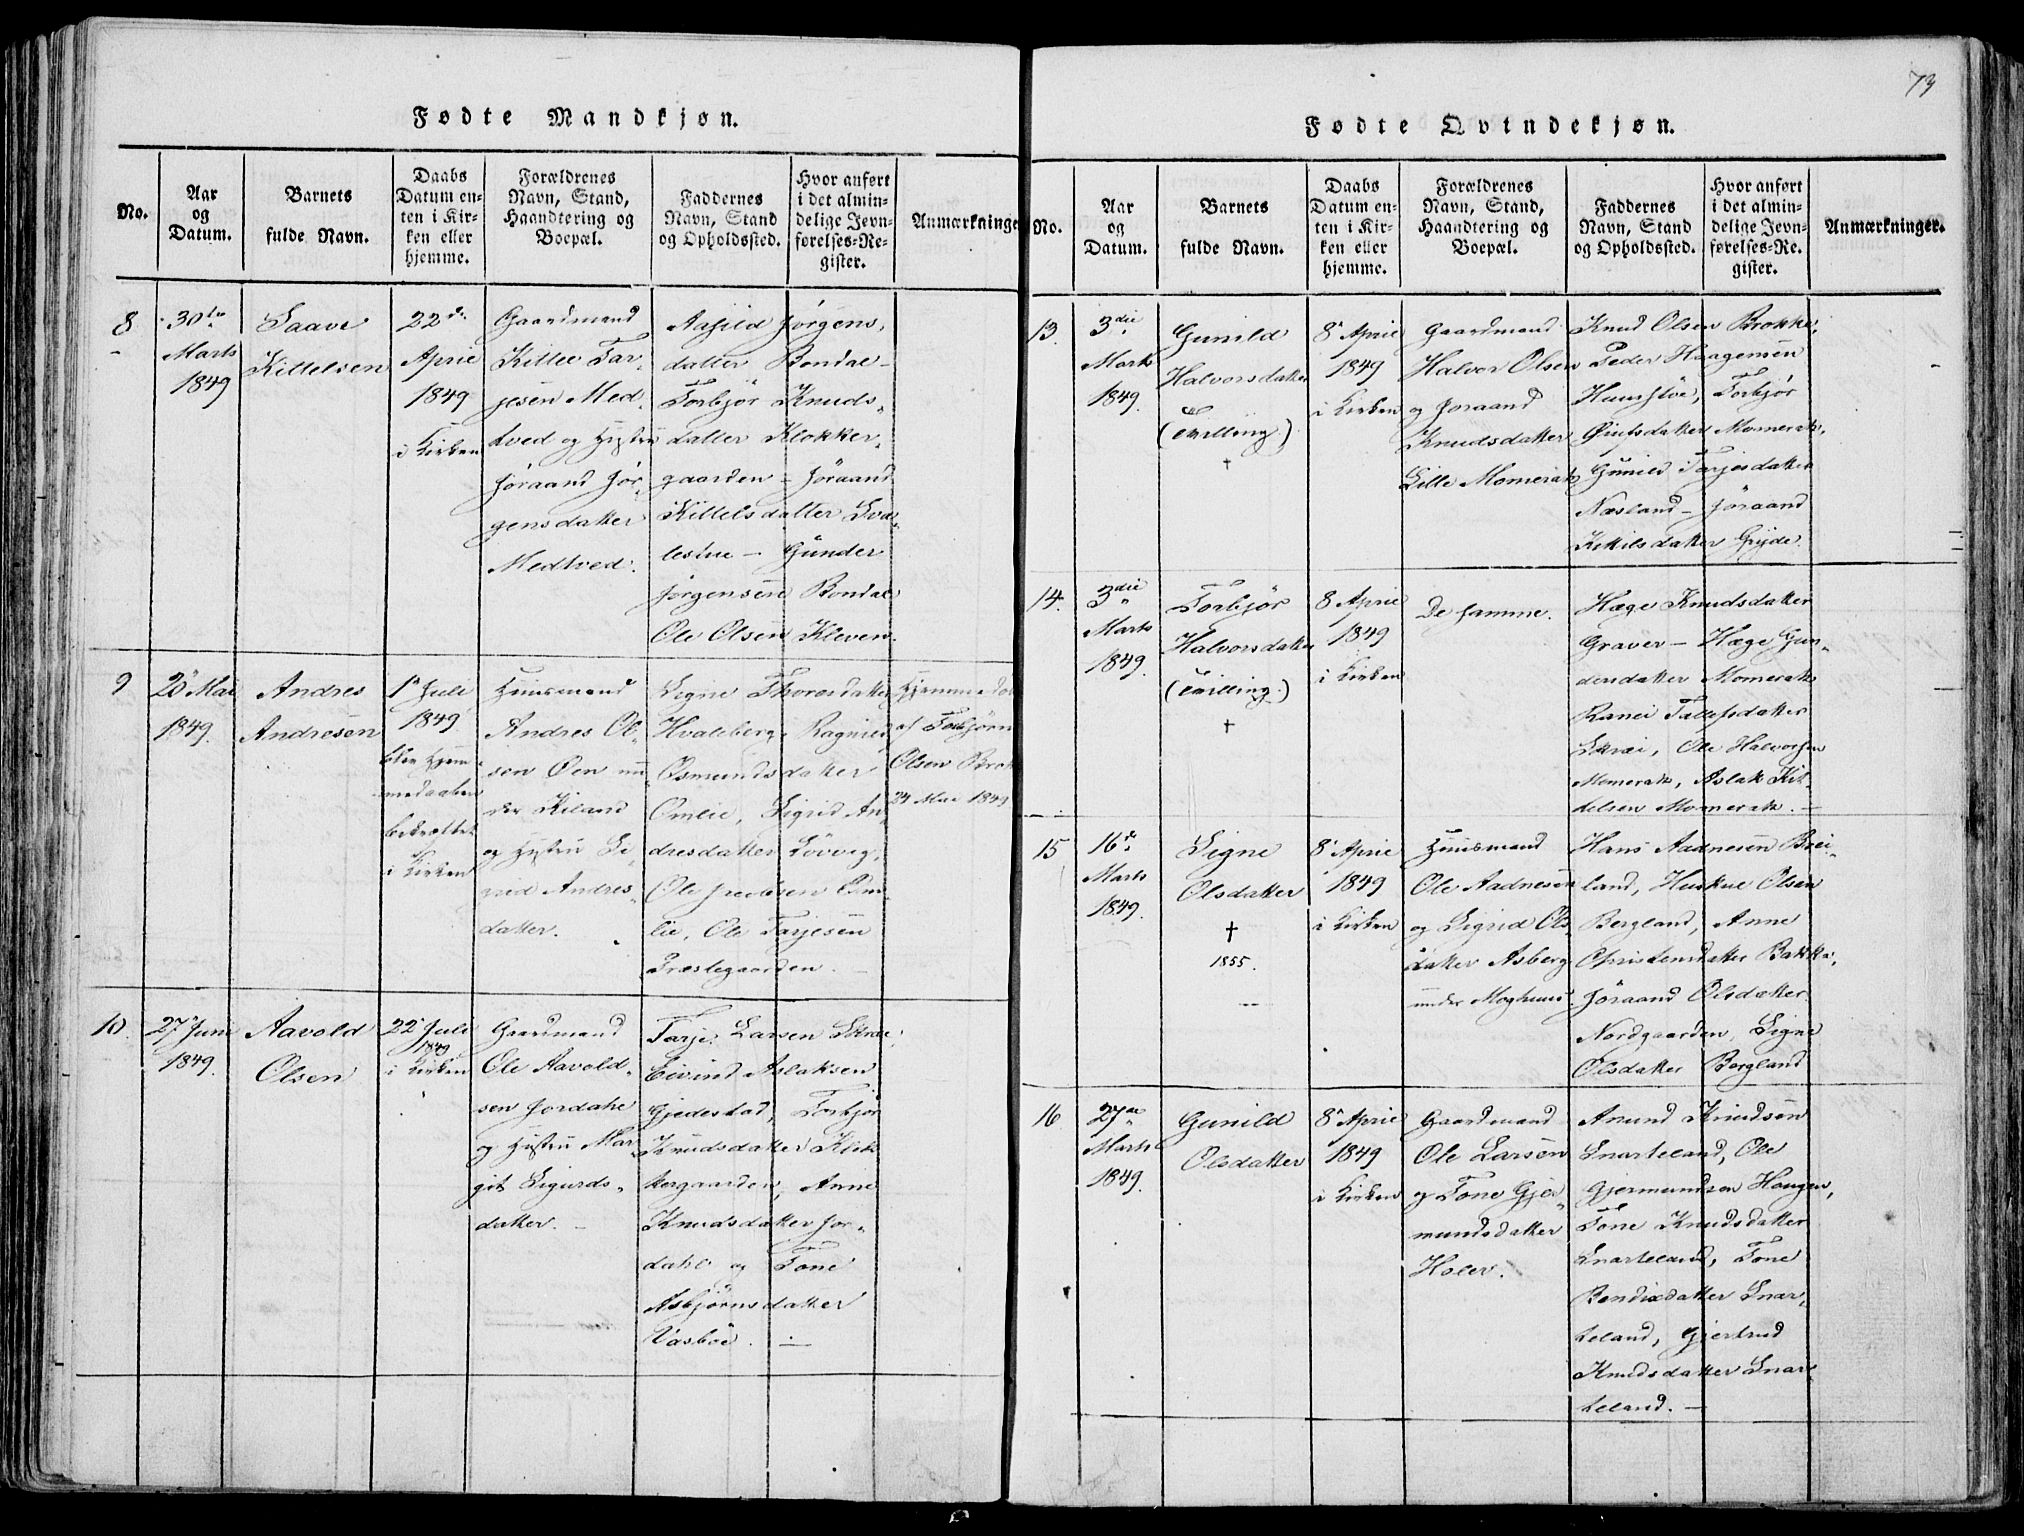 73
Fødte Mandkjøn.
No.
Aar
og
Datum.
Barnets
fulde Navn.
Daabs
Datum en-
ten i Kir-
ken eller
hjemme.
Forældrenes
Navn, Stand,
Haandtering og
Boepæl.
Faddernes
Navn, Stand
og Opholdssted.
Hvor anført
i det almin-
delige Jevn-
førelses-Re-
gister.
Anmærkninger
8
30te
Marts
1849
Saave
Kittelsen
22de
April
1849
i Kirken
Gaardmand
Kittel Tar-
jesen Med-
tved og Hustru
Jøraand Jør-
gensdatter
Medtved.
Aasild Jørgens-
datter Bondal -
Torbjør Knuds-
datter Klokker-
gaarden - Jøraand
Kittelsdatter Sva-
lestue - Gunder
Jørgensen Bondal
Ole Olsen Kleven.
9
Mai
1849.
Andres
Andresen
1ste Juli
1849
blev Hjem-
medaaben
bekræftet
i Kirken
Huusmand
Andres Ol-
sen Øen un-
der Kiland
og Hustru Si-
grid Andres-
datter.
Signe Thorsdatter
Hvaleberg, Ragnild
Osmundsdatter
Omlie, Sigrid An-
dresdatter Løvveg,
Ole Om-
lie, Ole Tarjesen
Præstegaarden.
Hjemmedøbt
af Torbjørn
Olsen Brok
24 Mai 1849
10.
27 Juni
1849.
Aavold
Olsen
22 Juli
1849
i Kirken
Gaardmand
Ole Aavold-
sen Jordahl
og Hustru Mar-
git Sigurds-
datter. -
Tarje Larsen Skræi,
Eivind Aslaksen
Gjedestad, Torbjør
Knudsdatter Klok-
kergaarden, Anne
Knudsdatter Jor-
dahl og Tone
Asbjørnsdatter
Vasbøe. -
Fødte Qvindekjøn.
No.
Aar
og
Datum.
Barnets
fulde Navn.
Daabs
Datum en-
ten i Kir-
ken eller
hjemme.
Forældrenes
Navn, Stand,
Haandtering og
Boepæl.
Faddernes
Navn, Stand
og Opholdssted.
Hvor anført
i det almin-
delige Jevn-
førelses-Re-
gister.
Anmærkninger.
13.
3die
Marts
1849.
Gunild
Halvorsdatter
(Tvilling)
†
8 April
1849
i Kirken
Gaardmand
Halvor Olsen
og Jøraand
Knudsdatter
Lille Momerak
Knud Olsen Brokke,
Peder Haagensen
Torbjør
Øiufsdatter Momerak,
Gunild Tarjesdatter
Næsland - Jøraand
Kittilsdatter
14.
3die
Marts
1849.
Torbjør
Halvorsdatter
(Tvilling.)
†
8 April
1849
i Kirken
De samme.
Hæge Knudsdatter
Graver - Hæge Gun-
dersdatter Momerak
Ranei Tallefsdatter
Skræi, Ole Halvorsen
Momerak, Aslak Kit-
telsen Momerak. -
15
16de
Marts
1849.
Signe
Olsdatter
†
1855.
8 April
1849
i Kirken
Huusmand
Ole Aadnesen
og Sigrid Ols-
datter Asberg
under Moghuus.
Hans Aadnesen Brei-
land, Olsen
Bergland, Anne
Christensdatter Bakke,
Jøraand Olsdatter
Nordgaarden, Signe
Olsdatter Bergland
16
27de
Marts
1849.
Gunild
Olsdatter
8 April
1849
i Kirken
Gaardmand
Ole Larsen
og Tone Gjer-
mundsdatter
Anund Knudsen
Snarteland, Ole
Gjermundsen Hougen,
Tone Knudsdatter
Snarteland, Tone
Bendixdatter Snar-
teland, Gjertrud
Knudsdatter Snar-
teland. -